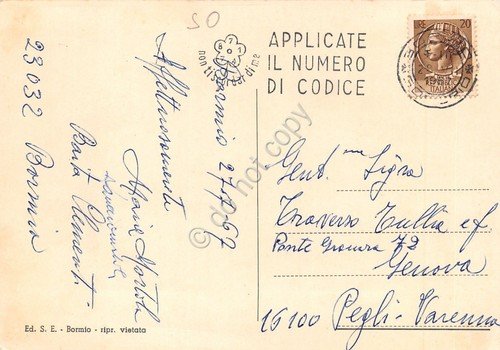 50
APPLICATE
IL NUMERO
DI CODICE
non ti scordar di me
20
ITALIA
Bormio 27/7/67
Affettuosamente
Maria
Clementi -
23032 Bormio
Gent.ma Sig.ra
Traverso Tullia e f.
Ponte Granara 72
Genova
16100 Pegli - Varenna
Ed. S. E. - Bormio - ripr. vietata
do not copy